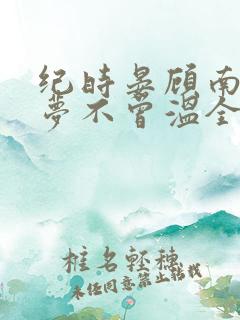 纪时晏顾南
梦不曾温全
椎名轻穗
未经同意禁止转载